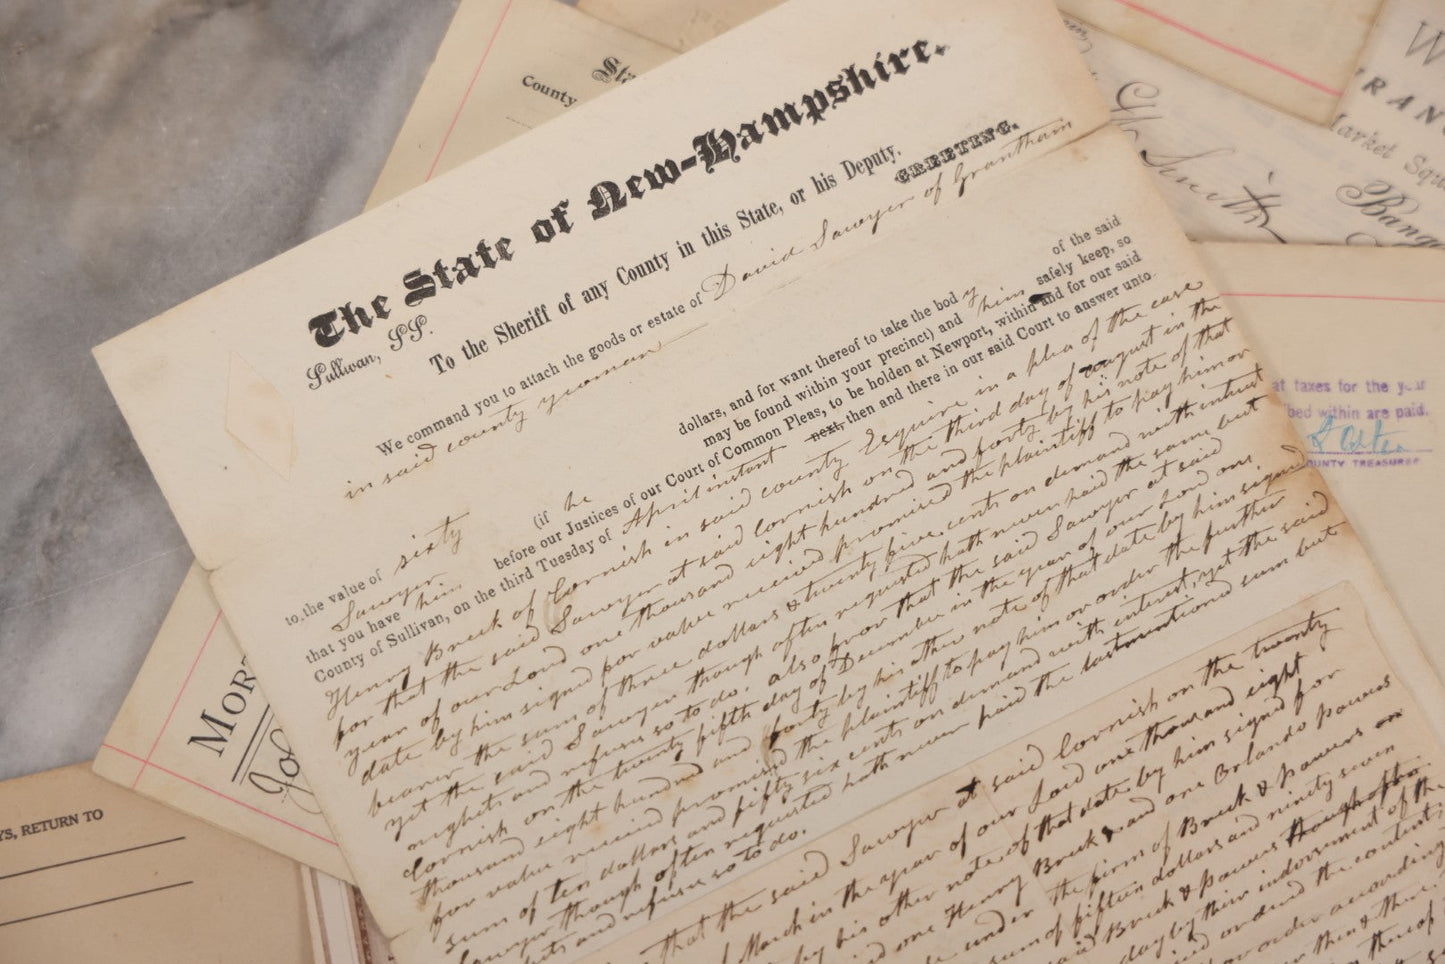 The State of New-Hampshire.
Sullivan, SS.
To the Sheriff of any County in this State, or his Deputy.
GREETING.
We command you to attach the goods or estate of David Sawyer of Grantham
in said county yeoman
to the value of sixty dollars, and for want thereof to take the bod y of the said
Sawyer (if he may be found within your precinct) and him safely keep, so
that you have him before our Justices of our Court of Common Pleas, to be holden at Newport, within and for our said
County of Sullivan, on the third Tuesday of April instant next, then and there in our said Court to answer unto
Henry Breck of Cornish in said county Esquire in a plea of the case
for that the said Sawyer at said Cornish on the third day of august in the
year of our Lord one thousand eight hundred and forty by his note of that
date by him signed for value received promised the plaintiff to pay him or
bearer the sum of three dollars & twenty five cents on demand with interest
yet the said Sawyer though often requested hath never paid the same but
neglects and refuses so to do. also for that the said Sawyer at said
Cornish on the twenty fifth day of December in the year of our Lord one
thousand eight hundred and forty by his other note of that date by him signed
for value received promised the plaintiff to pay him or order the further
sum of ten dollars and fifty six cents on demand with interest, yet the said
Sawyer though often requested hath never paid the last mentioned sum but
and refuses so to do.
that the said Sawyer at said Cornish on the twenty
March in the year of our Lord one thousand eight
by his other note of that date by him signed for
one Henry Breck and one Orlando Powers
under the firm of Breck & Powers
sum of fifteen dollars and ninety seven
said Breck & Powers
day by their indorsement of the
ordered the contents
or order according
County
Sta
MOR
YS, RETURN TO
Smith
W
RAN
Market Squ
Bang
at taxes for the year
bed within are paid.
OUNTY TREASURER